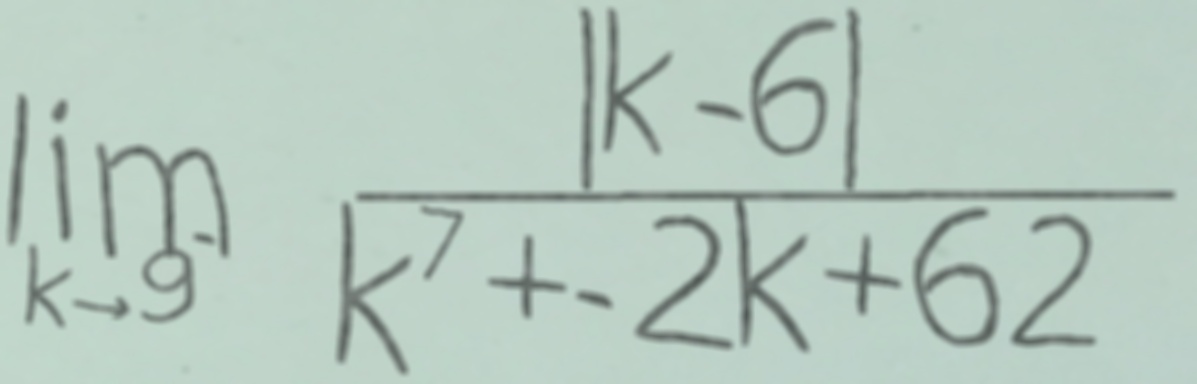 \lim_{k \to 9^-} \frac{|k-6|}{k^7+-2k+62}